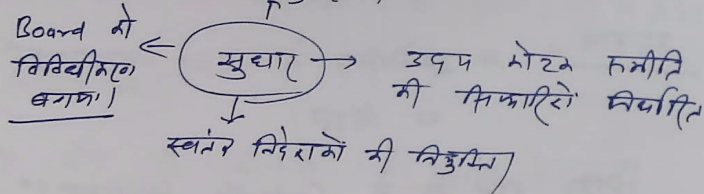 Board को
विविधीकरण
बनाना।
सुधार
उदय कोटक समिति
की सिफारिशें निर्धारित
स्वतंत्र निदेशकों की नियुक्ति